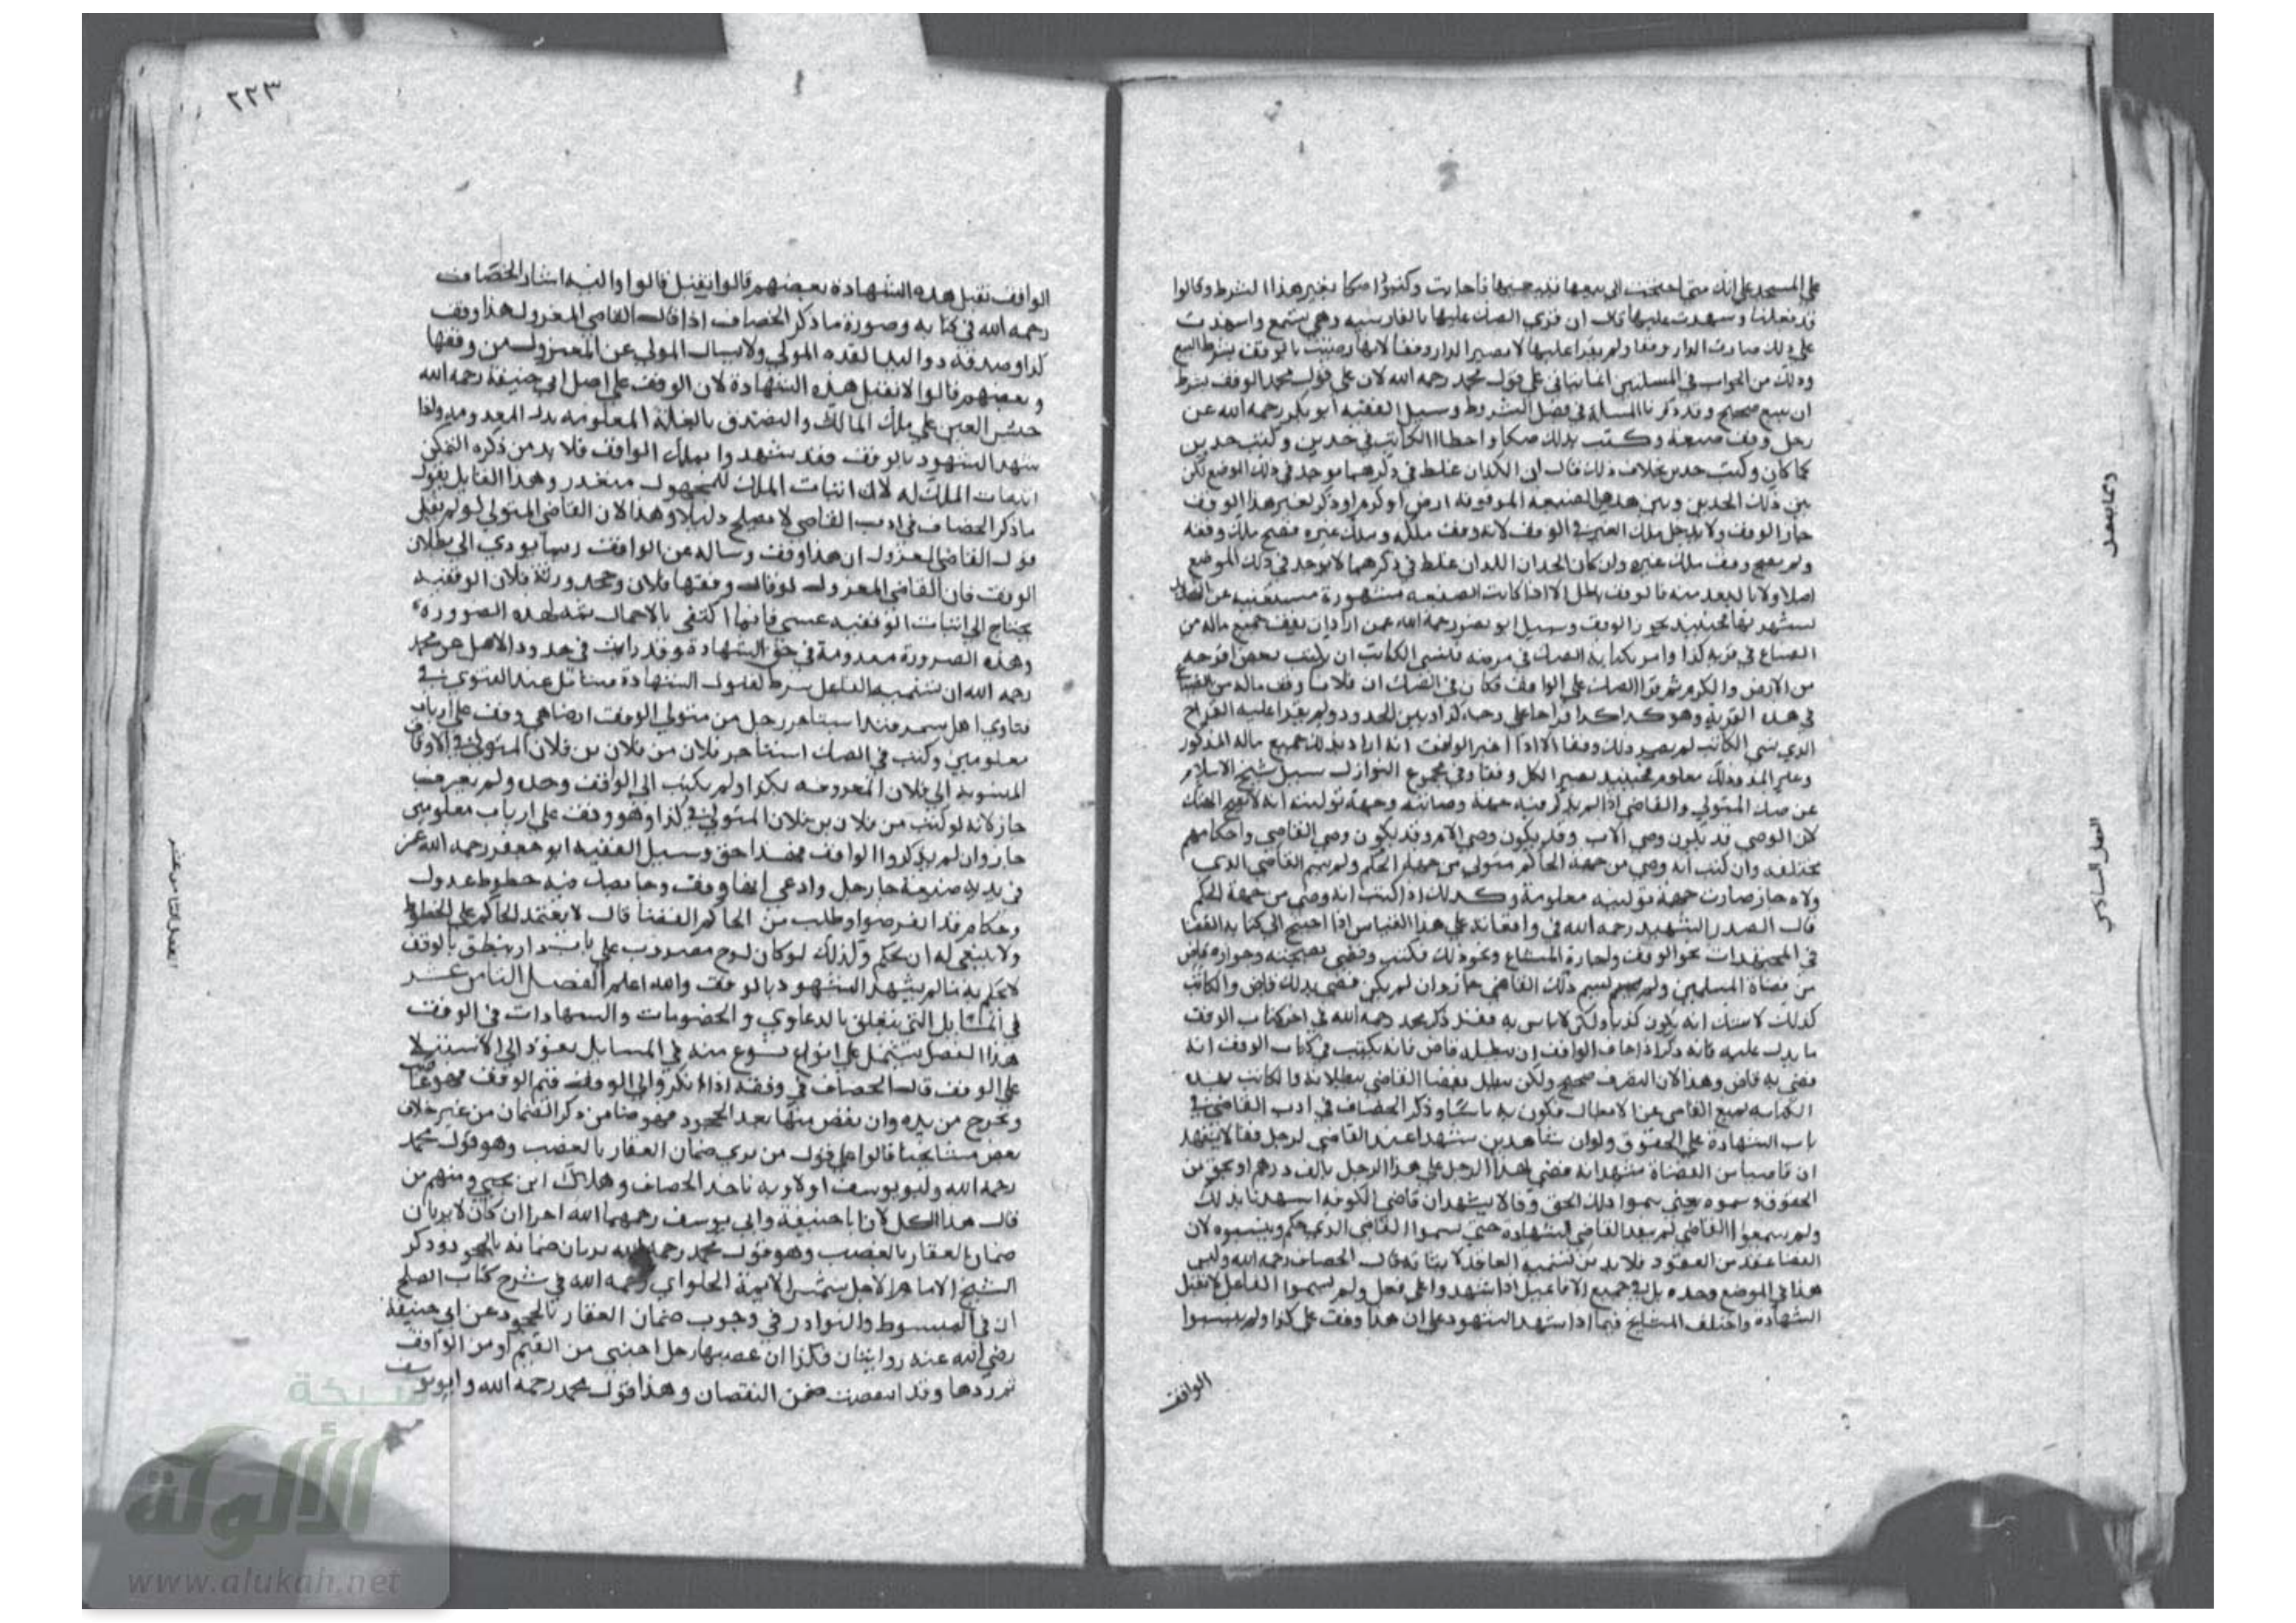 على المسجد على انك متى احتجت الى بيعها تبيعيها فاجابت وكتبوا صكا بغير هذا الشرط وقالوا
قد فعلنا وشهدت عليها قال ان قرى الصك عليها بالفارسية وهي تسمع واشهدت
على ذلك صارت الدار وقفا ولم يقرا عليها لا تصير الدار وقفا لانها رضيت بالوقف بشرط البيع
وذلك من الجواب في المسلتين انما يتاتى على قول محمد رحمه الله لان على قول محمد الوقف بشرط
ان يبيع صحيح وقد ذكرنا المسلة في فصل الشروط وسيل الفقيه ابو بكر رحمه الله عن
رجل وقف ضيعة وكتب بذلك صكا واخطا الكاتب في حدين وكتب حدين
كما كان وكتب حدين بخلاف ذلك قال ان الحدان غلط في ذكرهما يوجد في ذلك الموضع لكن
بين ذلك الحدين وبين هذه الضيعة الموقوفة ارض او كرم او دكر لغير هذا الوقف
جاز الوقف ولا يدخل ملك الغير في الوقف لانه وقف ملكه وملك غيره فصح ملك وقفه
ولم يصح وقف ملك غيره وان كان الحدان اللذان غلط في ذكرهما لا يوجد في ذلك الموضع
اصلا ولا بالبعد منه فالوقف باطل الا اذا كانت الضيعة مشهورة مستغنية عن
لشهرتها فحينئذ يجوز الوقف وسيل ابو نصر رحمه الله عمن اراد ان يقف جميع ماله من
الضياع في قرية كذا وامر بكتابة الصك في مرضه فنسي الكاتب ان يكتب بعض اقرحة
من الارض والكرم ثم قرا الصك على الواقف فكان في الصك ان فلانا وقف ماله من
في هذه القرية وهو كذا كذا قراحا على وجه كذا وبين الحدود ولم يقرا عليه القراح
الذي نسي الكاتب لم يصير ذلك وقفا الا اذا اخبر الواقف انه اراد بذلك جميع ماله المذكور
وغير المذ وذلك معلوم فحينئذ يصير الكل وقفا وفي مجموع النوازل سيل شيخ الاسلام
عن صك المتولي والقاضي اذا لم يذكر فيه جهة وصايته وجهة توليته انه لا يصح الصك
لان الوصي قد يكون وصي الاب وقد يكون وصي الام وقد يكون وصي القاضي واحكامهم
مختلفه وان كتب انه وصي من جهة الحاكم متولي من جهة الحكم ولم يسم القاضي الذي
ولاه جاز صارت جهة توليته معلومة وكذلك اذا كتب انه وصي من جهة الحكم
قال الصدر الشهيد رحمه الله في واقعاته على هذا القياس اذا احتيج الى كتابة القضا
في المجتهدات نحو الوقف واجارة المشاع ونحو ذلك فكتب وقضى بصحته وجوازه قاض
من قضاة المسلمين ولم يسم ذلك القاضي جاز وان لم يكن قضى بذلك قاض والكاتب
كذلك لا شك انه يكون كذبا ولكن لا باس به فقد ذكر محمد رحمه الله في اخر كتاب الوقف
ما يدل عليه فانه ذكر اذا خاف الواقف ان يبطله قاض فانه يكتب في كتاب الوقف انه
قضى به قاض وهذا لان التصرف صحيح ولكن يبطل بقضا القاضي ببطلانه والكاتب بهذه
الكتابة يمنع القاضي عن الابطال فيكون به باسا وذكر الخصاف في ادب القاضي في
باب الشهادة على الحقوق ولو ان شاهدين شهدا عند القاضي لرجل فقالا نشهد
ان قاضيا من القضاة شهدانه قضى لهذا الرجل على هذا الرجل بالف درهم او بحق من
الحقوق وسموه يعني سموا ذلك الحق وقالا نشهد ان قاضي الكوفة اشهدنا بذلك
ولم يسموا القاضي لم ينفذ القاضي الشهادة حتى يسموا القاضي الذي حكم وينسبوه لان
القضا عقد من العقود فلا بد من تسمية العاقد لاثباته قال الخصاف رحمه الله وليس
هذا في الموضع وحده بل في جميع الافاعيل اذا شهدوا على فعل ولم يسموا الفاعل لا تقبل
الشهادة واختلف المشايخ فيما اذا شهد الشهود على ان هذا وقف على كذا ولم يسموا
الواقف
وكما يفعل
الفصل السادس
٢٢٣
الواقف تقبل هذه الشهادة بعضهم قالوا تقبل قالوا واليه اشار الخصاف
رحمه الله في كتابه وصورة ما ذكر الخصاف اذا قال القاضي المعزول هذا وقف
كذا وصدقه ذو اليد انفذه المولى ولا يسال المولى عن المعزول من وقفها
وبعضهم قالوا لا تقبل هذه الشهادة لان الوقف على اصل ابي حنيفة رحمه الله
حبس العين على ملك المالك والتصدق بالغلة المعلومة بدل المعدومة واذا
شهد الشهود بالوقف فقد شهدوا بملك الواقف فلا بد من ذكره لتمكن
اثبات الملك له لان اثبات الملك للمجهول متعذر وهذا القايل يقول
ما ذكر الخصاف في ادب القاضي لا يصلح دليلا وهذا لان القاضي المتولي لو لم يقبل
قول القاضي المعزول ان هذا وقف وساله عن الواقف ربما يودي الى بطلان
الوقف فان القاضي المعزول لو قال وقفها فلان وجحد ورثة فلان الوقفية
يحتاج الى اثبات الوقفية عسى فانما اكتفى بالاجمال ثمة لهذه الضرورة
وهذه الضرورة معدومة في حق الشهادة وقد رايت في حدود الاصل عن محمد
رحمه الله ان تسمية الفاعل شرط لقبول الشهادة فيتامل عند الفتوى في
فتاوى اهل سمرقند استاجر رجل من متولي الوقف ارضا هي وقف على ارباب
معلومين وكتب في الصك استاجر فلان من فلان بن فلان المتولي في الاوقاف
المنسوبة الى فلان المعروفة بكذا ولم يكتب اب الواقف وجده ولم يعرف
جاز لانه لو كتب من فلان بن فلان المتولي في كذا وهو وقف على ارباب معلومين
جاز وان لم يذكروا الواقف فهذا احق وسيل الفقيه ابو جعفر رحمه الله عن
من بيده ضيعة جا رجل وادعى انها وقف وجا بصك فيه خطوط عدول
وحكام قد انقرضوا وطلب من الحاكم القضا قال لا يعتمد الحاكم على الخطوط
ولا ينبغي له ان يحكم وكذلك لو كان لوح مضروب على باب دار ينطق بالوقف
لا يحكم به ما لم يشهد الشهود بالوقف والله اعلم الفصل الثامن عشر
في المسايل التي يتعلق بالدعاوى والخصومات والشهادات في الوقف
هذا الفصل يشتمل على انواع نوع منه في المسايل يعود الى الاستيلا
على الوقف قال الخصاف في وقفه اذا انكر والي الوقف قيم الوقف فهو غاصب
ويخرج من يده وان نقص منها بعد الجحود فهو ضامن ذكر الضمان من غير خلاف
بعض مشايخنا قالوا على قول من يرى ضمان العقار بالغصب وهو قول محمد
رحمه الله وابو يوسف اولا وبه ناخذ الخصاف وهلال ابن يحيى ومنهم من
قال هذا الكل لان ابا حنيفة وابي يوسف رحمهما الله اخرا ان كان لا يريان
ضمان العقار بالغصب وهو قول محمد رحمه الله يريان ضمانه بالجحود وذكر
الشيخ الامام الاجل شمس الايمة الحلواي رحمه الله في شرح كتاب الصلح
ان في المبسوط والنوادر في وجوب ضمان العقار بالجحود عن ابي حنيفة
رضي الله عنه روايتان فكذا ان غصبها رجل اجنبي من القيم او من الواقف
ثم ردها وقد انتقصت ضمن النقصان وهذا قول محمد رحمه الله وابو يوسف
الفصل الثامن عشر
شبكة
الألوكة
www.alukah.net